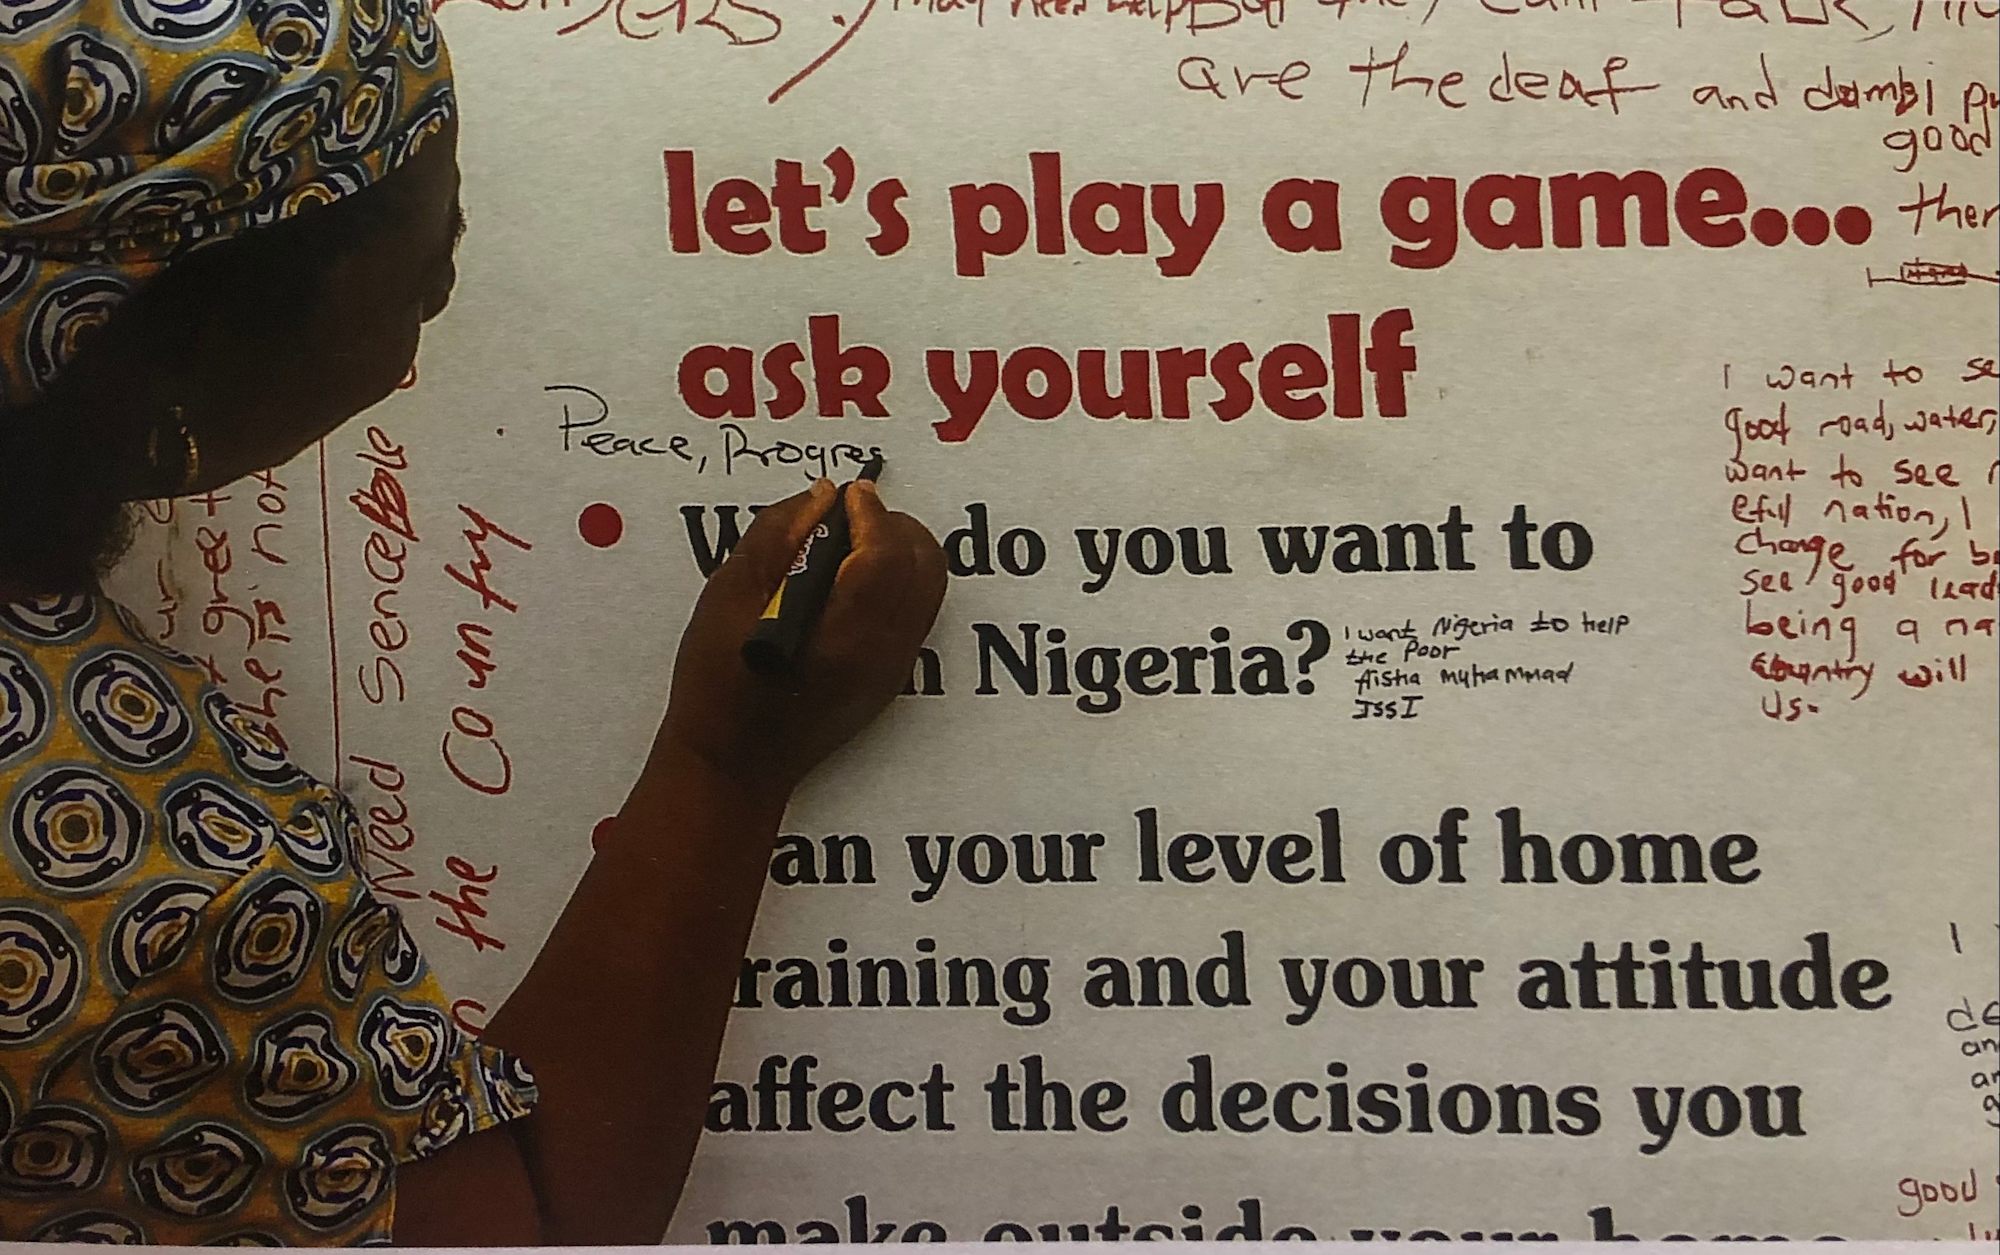 may need help But they can't talk,
are the deaf and dumb
good
let's play a game...
ask yourself
Peace, Progres
do you want to
Nigeria?
I want Nigeria to help
the Poor
Aisha Muhammad
JSS I
an your level of home
raining and your attitude
affect the decisions you
make outside your home
I want to se
good road, water,
want to see
eful nation, I
change for be
see good lead
being a na
country will
us.
I
de
an
good
Need Senceble
the County
not
she is